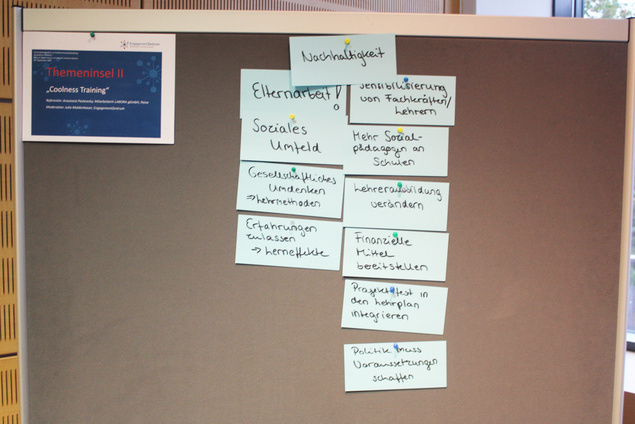 Themeninsel II
„Coolness Training“
Nachhaltigkeit
Elternarbeit!
Soziales
Umfeld
Gesellschaftliches
Umdenken
⇒ Lehrmethoden
Erfahrungen
zulassen
→ Lerneffekte
Sensibilisierung
von Fachkräften/
Lehrern
Mehr Sozial-
pädagogen an
Schulen
Lehrerausbildung
verändern
Finanzielle
Mittel
bereitstellen
Projekte fest in
den Lehrplan
integrieren
Politik muss
Voraussetzungen
schaffen